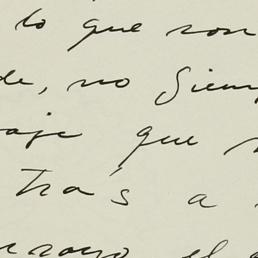 lo que son
de, no siem
aje que
tras a
el